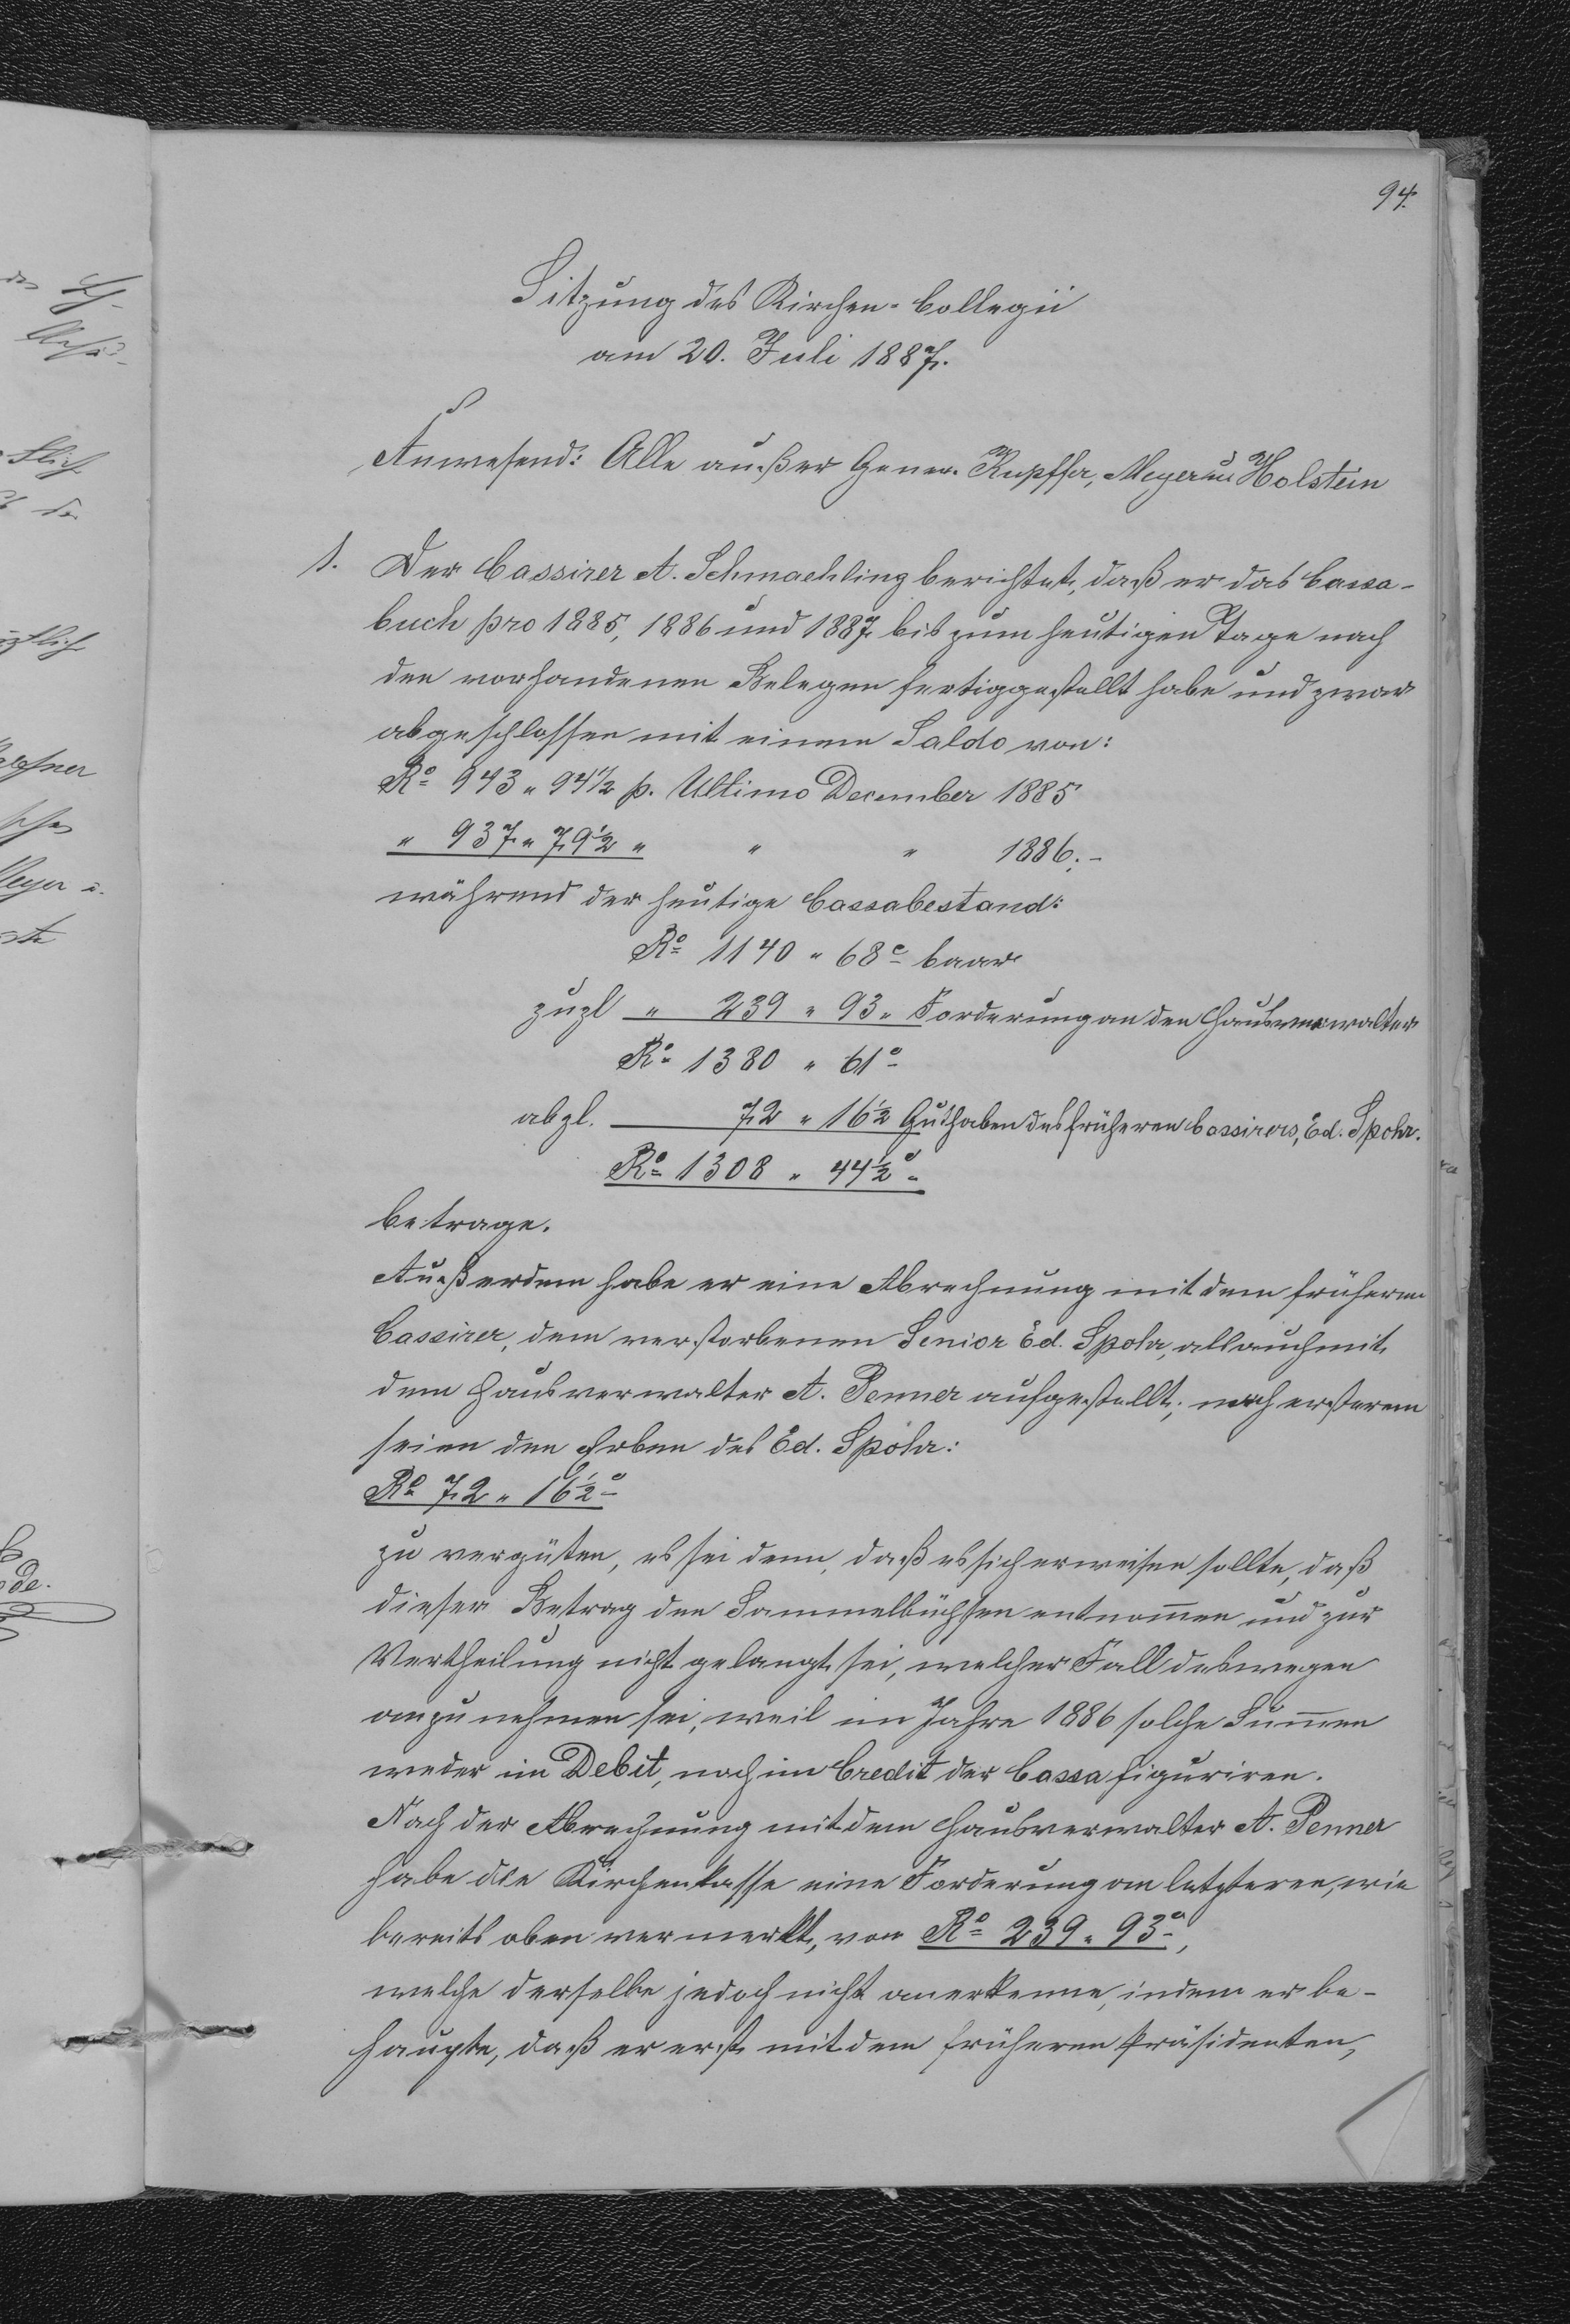 94.
Sitzung des Kirchen-Collegii
am 20. Juli 1887.
Anwesend: Alle außer Herrn. Kupffer, Meyer u. Holstein
1. Der Cassirer A. Schmaehling berichtet, daß er das Cassa-
buch pro 1885, 1886 und 1887 bis zum heutigen Tage nach
den vorhandenen Belegen fertiggestellt habe und zwar
abgeschlossen mit einem Saldo von:
Ro 943 „ 94 1/2 p. Ultimo December 1885
„ 937 „ 79 1/2 „ „ „ 1886.-
während der heutige Cassabestand:
Ro 1140 „ 68 c baar
zuzl „ 239 „ 93 „ Forderung an den Hausverwalter
Ro 1380 „ 61 c
abzl. 72 „ 16 1/2 Guthaben des früheren Cassirers, Ed. Spohr.
Ro 1308 „ 44 1/2 c
betrage.
Außerdem habe er eine Abrechnung mit dem früheren
Cassirer, dem verstorbenen Senior Ed. Spohr, als auch mit
dem Hausverwalter A. Penner aufgestellt; nach ersterem
seien den Erben des Ed. Spohr:
Ro 72 „ 16 1/2 c
zu vergüten, es sei denn, daß es sich erweisen sollte, daß
dieser Betrag den Sammelbüchsen entnom̄en und zur
Vertheilung nicht gelangt sei, welcher Fall deswegen
anzunehmen sei, weil im Jahre 1886 solche Sum̄en
weder im Debit, noch im Credit der Cassa figuriren.
Nach der Abrechnung mit dem Hausverwalter A. Penner
habe die Kirchenkasse eine Forderung an letzteren, wie
bereits oben vermerkt, von Ro 239 „ 93 c,
welche derselbe jedoch nicht anerkenne, indem er be-
haupte, daß er erst mit dem früheren Präsidenten,